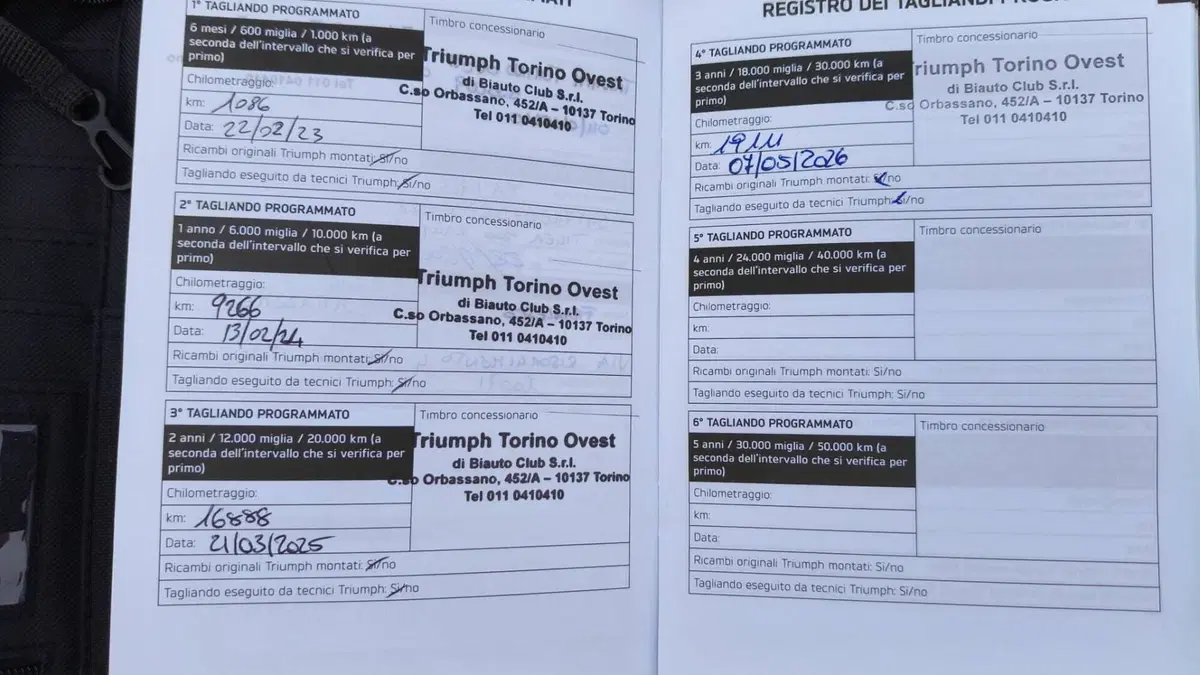 1° TAGLIANDO PROGRAMMATO
6 mesi / 600 miglia / 1.000 km (a
seconda dell'intervallo che si verifica per
primo)
Chilometraggio:
km: 1086
Data: 22/02/23
Timbro concessionario
Triumph Torino Ovest
di Biauto Club S.r.l.
C.so Orbassano, 452/A – 10137 Torino
Tel 011 0410410
Ricambi originali Triumph montati: Si/no
Tagliando eseguito da tecnici Triumph: Si/no
2° TAGLIANDO PROGRAMMATO
1 anno / 6.000 miglia / 10.000 km (a
seconda dell'intervallo che si verifica per
primo)
Chilometraggio:
km: 9266
Data: 13/02/24
Timbro concessionario
Triumph Torino Ovest
di Biauto Club S.r.l.
C.so Orbassano, 452/A – 10137 Torino
Tel 011 0410410
Ricambi originali Triumph montati: Si/no
Tagliando eseguito da tecnici Triumph: Si/no
3° TAGLIANDO PROGRAMMATO
2 anni / 12.000 miglia / 20.000 km (a
seconda dell'intervallo che si verifica per
primo)
Chilometraggio:
km: 16888
Data: 21/03/2025
Timbro concessionario
Triumph Torino Ovest
di Biauto Club S.r.l.
C.so Orbassano, 452/A – 10137 Torino
Tel 011 0410410
Ricambi originali Triumph montati: Si/no
Tagliando eseguito da tecnici Triumph: Si/no
REGISTRO DEI TAGLIANDI
4° TAGLIANDO PROGRAMMATO
3 anni / 18.000 miglia / 30.000 km (a
seconda dell'intervallo che si verifica per
primo)
Chilometraggio:
km:
Data: 07/05/2026
Timbro concessionario
Triumph Torino Ovest
di Biauto Club S.r.l.
C.so Orbassano, 452/A – 10137 Torino
Tel 011 0410410
Ricambi originali Triumph montati: Si/no
Tagliando eseguito da tecnici Triumph: Si/no
5° TAGLIANDO PROGRAMMATO
4 anni / 24.000 miglia / 40.000 km (a
seconda dell'intervallo che si verifica per
primo)
Chilometraggio:
km:
Data:
Timbro concessionario
Ricambi originali Triumph montati: Si/no
Tagliando eseguito da tecnici Triumph: Si/no
6° TAGLIANDO PROGRAMMATO
5 anni / 30.000 miglia / 50.000 km (a
seconda dell'intervallo che si verifica per
primo)
Chilometraggio:
km:
Data:
Timbro concessionario
Ricambi originali Triumph montati: Si/no
Tagliando eseguito da tecnici Triumph: Si/no